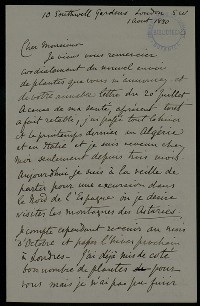 10 Southwell Gardens London. S.W
1 Aout 1880
Cher Monsieur
Je viens vous remercier
cordialement du nouvel envoi
de plantes que vous m'annoncez et
de votre aimable lettre du 20 Juillet
A cause de ma santé, à présent tout
à fait rétablie, j'ai passé tout l'hiver
et le printemps dernier en Algérie
et en Italie et je suis revenu chez
moi seulement depuis trois mois
Aujourd'hui je suis à la veille de
partir pour une excursion dans
le Nord de l'Espagne où je désire
visiter les montagnes des Astéries
Je compte cependant revenir au mois
d'Octobre et passer l'hiver prochain
à Londres – J'ai déjà mis de côté
bon nombre de plantes pour
vous mais je n'ai pas pu finir